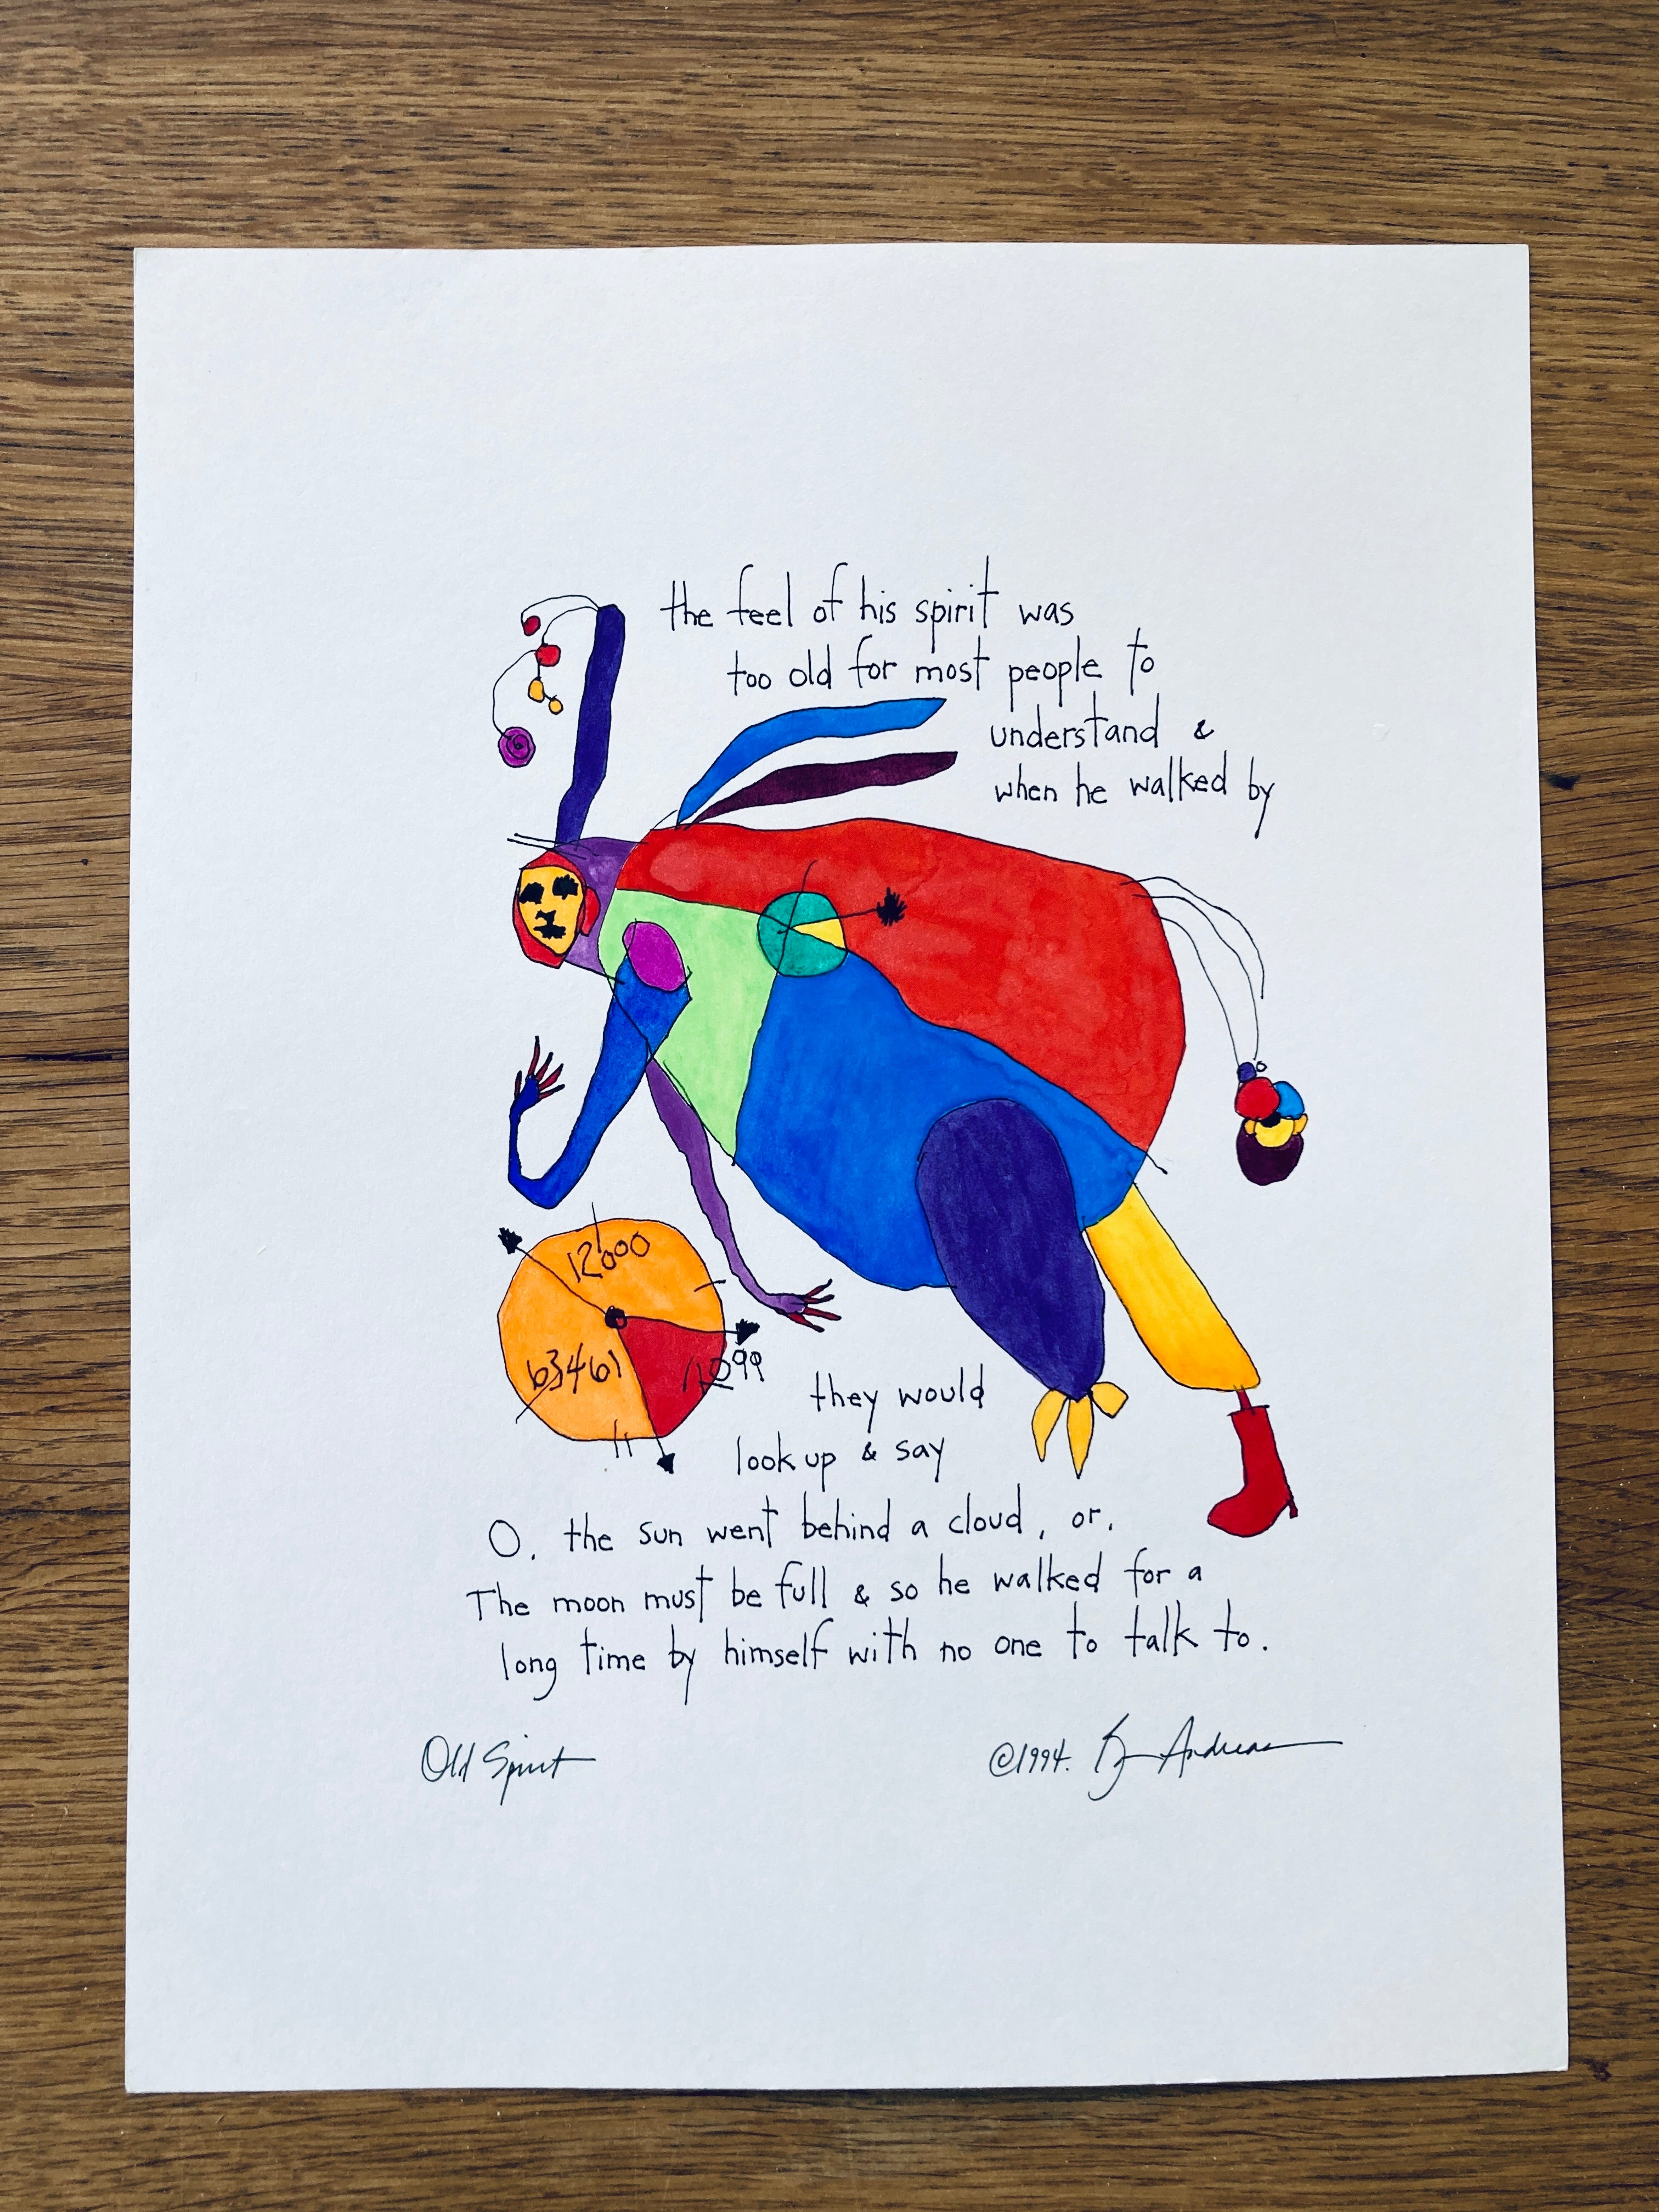 the feel of his spirit was
too old for most people to
understand &
when he walked by
12000
63461
they would
look up & say
O. the sun went behind a cloud, or.
The moon must be full & so he walked for a
long time by himself with no one to talk to.
Old Spirit
©1994. Andreas